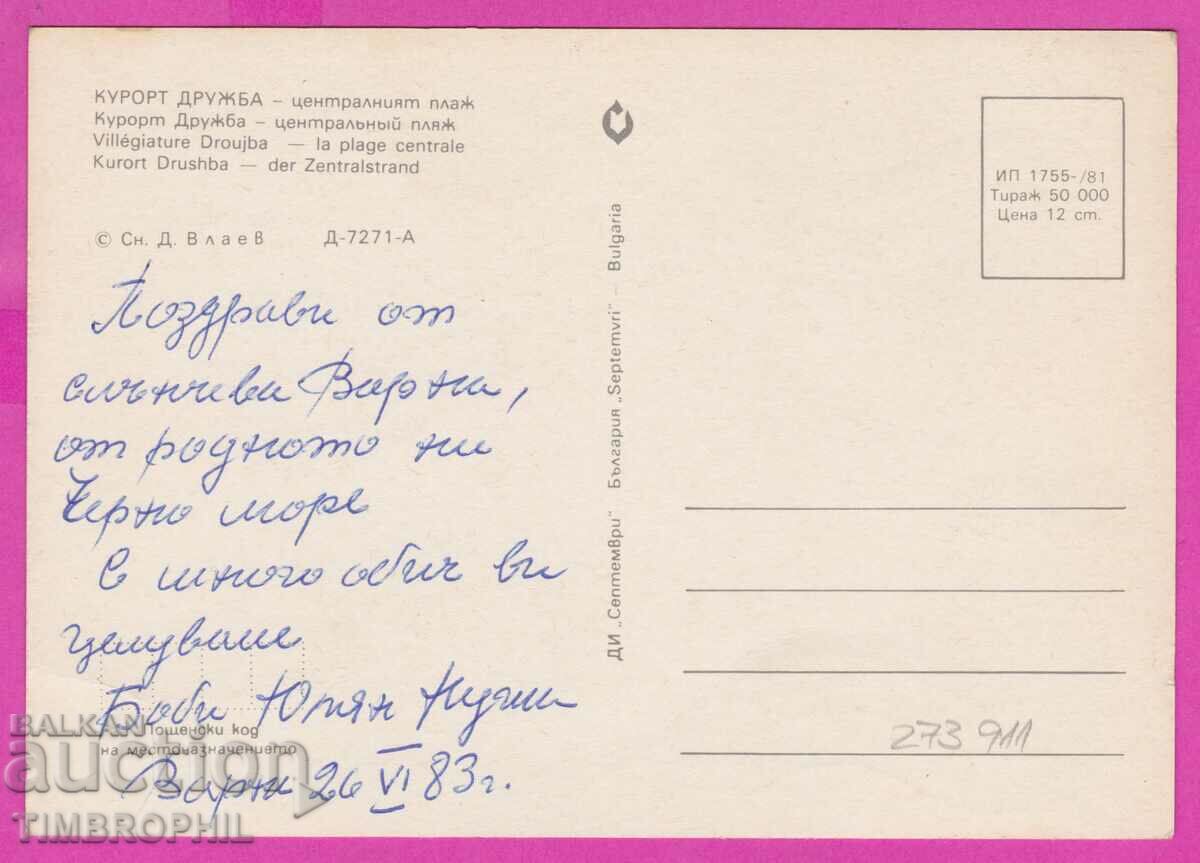 КУРОРТ ДРУЖБА – централният плаж
Курорт Дружба – центральный пляж
Villégiature Droujba — la plage centrale
Kurort Drushba — der Zentralstrand
© Сн. Д. Влаев Д-7271-А
Поздрави от
слънчева Варна,
от родното ни
Черно море
С много обич ви
целуваме
Боби Юлян
Пощенски код
на местоназначението
Варна 26 VI 83 г.
ДИ „Септември“ България „Septemvri“ – Bulgaria
ИП 1755-/81
Тираж 50 000
Цена 12 ст.
273 911
BALKAN
auction
TIMBROPHIL